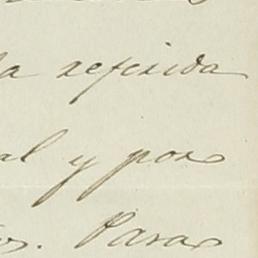 la referida
al y por
os. Para